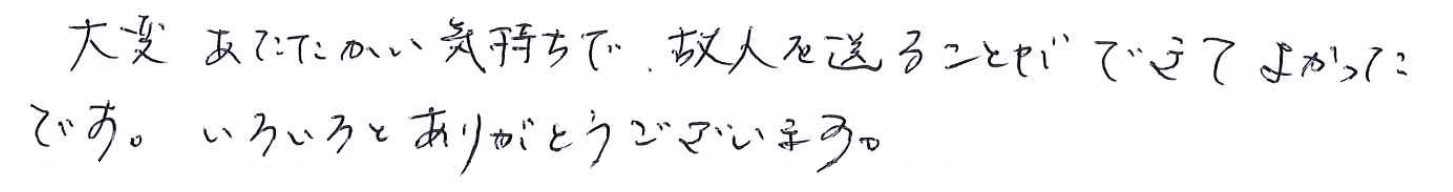 大変 あたたかい気持ちで、故人を送ることができてよかった
です。 いろいろとありがとうございます。